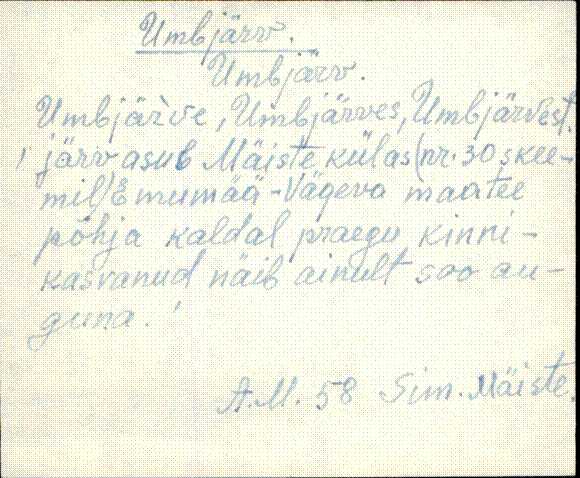 Umbjärv.
Umbjärv.
Umbjärve, Umbjärves, Umbjärvest.
järv asub Mäiste külas (nr. 30 skee-
mil) Emumää - Vägeva maatee
põhja kaldal praegu kinni-
kasvanud näib ainult soo au-
guna.
A.M. 58 Sim. Mäiste.